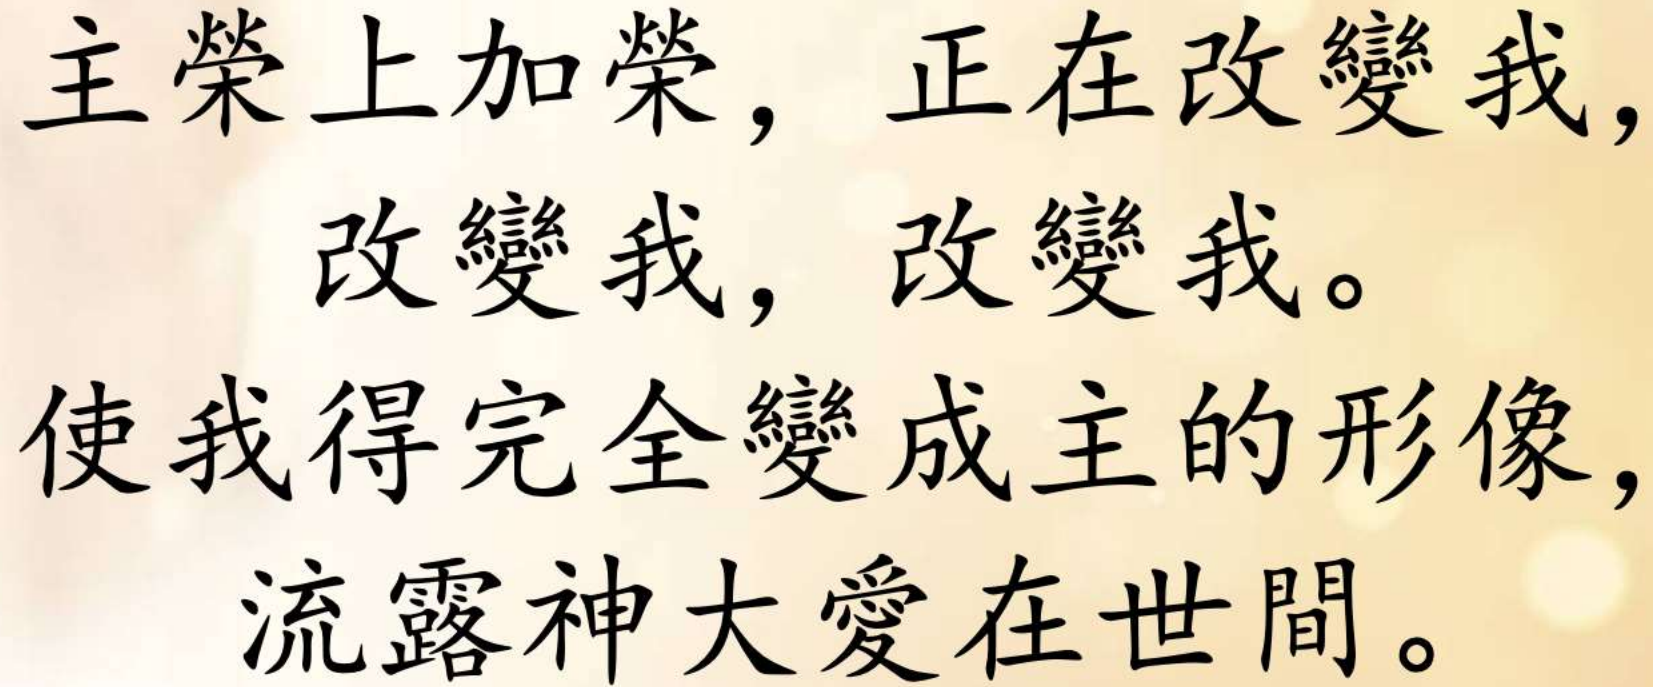 主榮上加榮，正在改變我，
改變我，改變我。
使我得完全變成主的形像，
流露神大愛在世間。